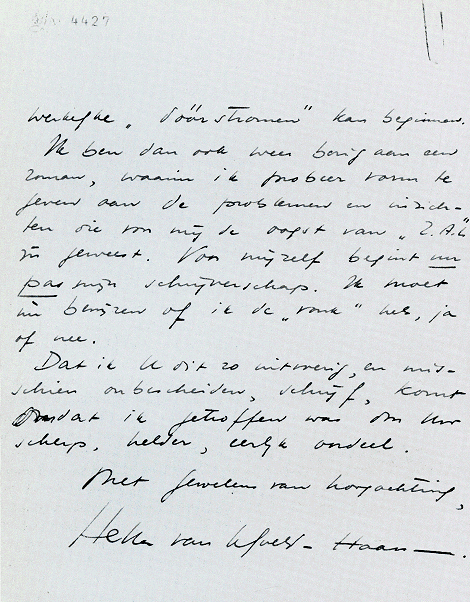 4427
werkelijke "dóórstromen" kan beginnen.
Ik ben dan ook weer bezig aan een
roman, waarin ik probeer vorm te
geven aan de problemen en inzich-
ten die voor mij de oogst van "Z.A.L"
zijn geweest. Voor mijzelf begint nu
pas mijn schrijverschap. Ik moet
nu bewijzen of ik de "vonk" heb, ja
of nee.
Dat ik U dit zo uitvoerig, en mis-
schien onbescheiden, schrijf, komt
omdat ik getroffen was door Uw
scherp, helder, eerlijk oordeel.
Met gevoelens van hoogachting,
Hella van Lelyveld-Haasse.